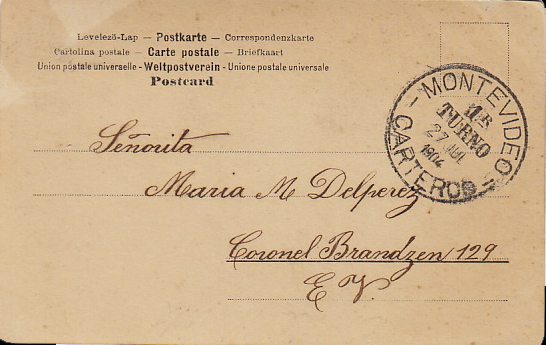 Levelező-Lap — Postkarte — Correspondenzkarte
Cartolina postale — Carte postale — Briefkaart
Union postale universelle - Weltpostverein - Unione postale universale
Postcard
MONTEVIDEO
1ER
TURNO
27 JUL
1904
CARTEROS
Señorita
Maria M Delperez
Coronel Brandzen 129
E. V.